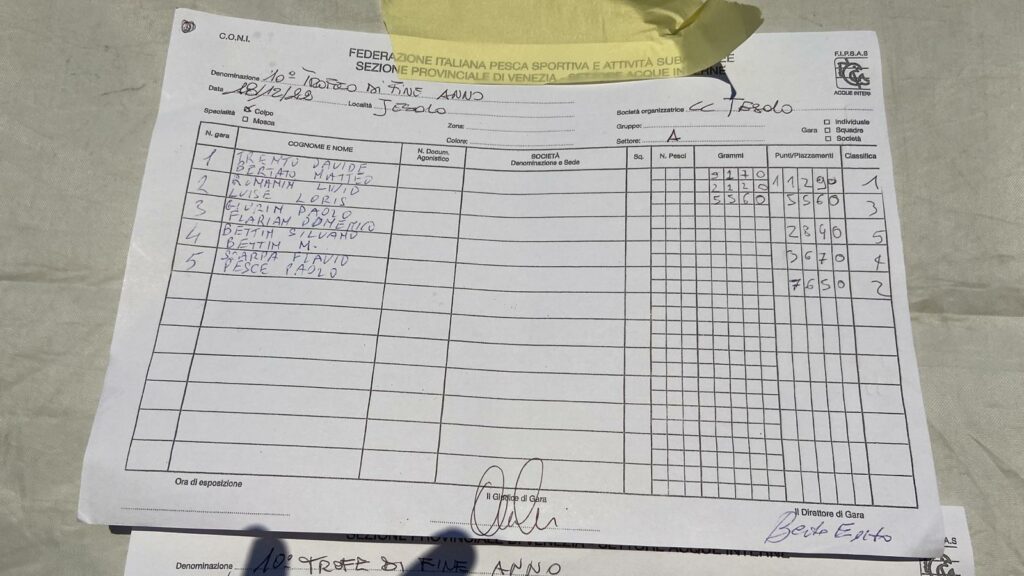 C.O.N.I.
FEDERAZIONE ITALIANA PESCA SPORTIVA E ATTIVITÀ SUB
SEZIONE PROVINCIALE DI VENEZIA - SETTORE ACQUE INTERNE
F.I.P.S.A.S
ACQUE INTERNE
Denominazione 10° TROFEO DI FINE ANNO
Data 18/12/22 Località JESOLO
Società organizzatrice CC JESOLO
Specialità Colpo
Mosca
Zona:
Colore:
Gruppo:
Settore: A
Gara
Individuale
Squadre
Società
N. gara COGNOME E NOME N. Docum. Agonistico SOCIETÀ Denominazione e Sede Sq. N. Pesci Grammi Punti/Piazzamenti Classifica
1 TRENTO DAVIDE 9170 11290 1
BERTATO MATTEO 2220
2 LUVID 5560 5560 3
LUISE LORIS
3 PAOLO 2890 5
FLORIAN DOMENICO
4 BETTIN SILVANO 3670 4
BETTIN M.
5 SCARPA FLAVIO 7650 2
PESCE PAOLO
Ora di esposizione
Il Giudice di Gara
Il Direttore di Gara
SEZIONE PROVINCIALE DI VENEZIA - SETTORE ACQUE INTERNE
Denominazione 10° TROFE DI FINE ANNO
F.I.P.S.A.S